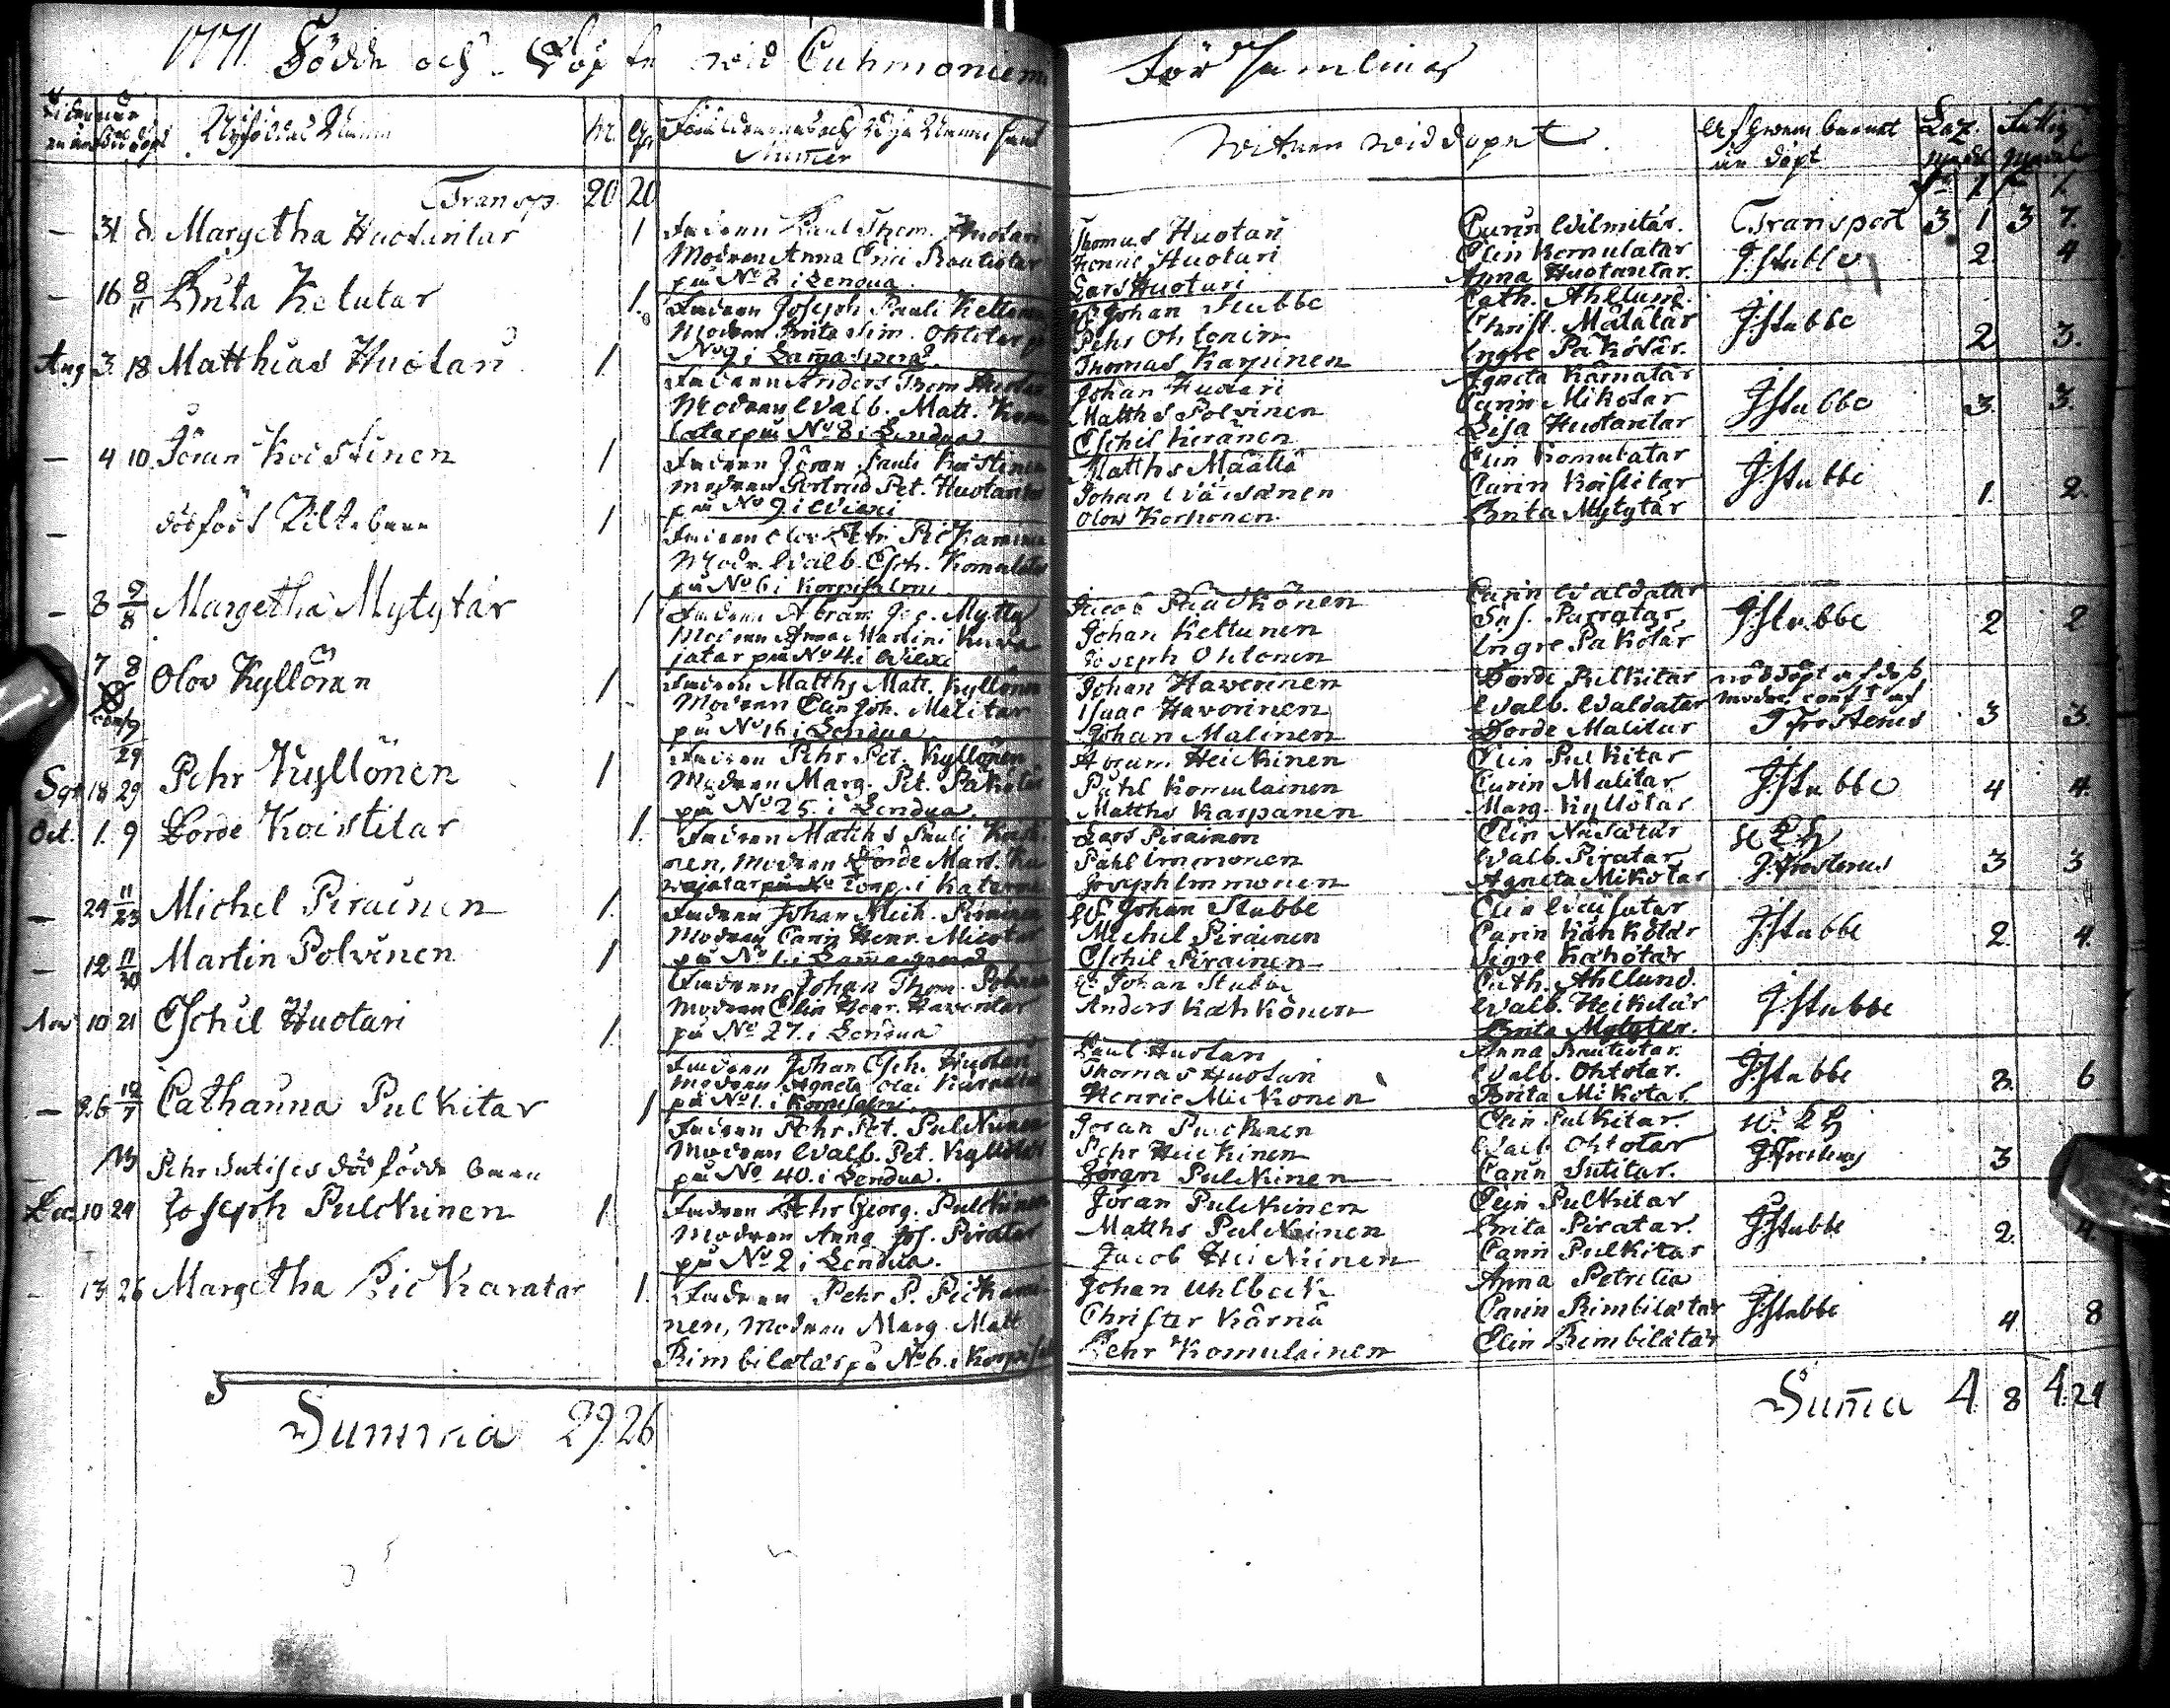 1771 Födde och Döpte wid Cuhmoniemi
Församling
Nyföddas Namn
M. Q.
Witnen wid dopet
Af hwem barnet
är döpt
Transp. 20 20
Transport 3 1 3 7.
— 31 Margetha Huotantar 1
Fadren Paul Thom. Huotari
Modren Anna Erici Rautiotar
på N° 8 i Lendua
Thomas Huotari
Henric Huotari
Lars Huotari
Carin Wilmitar.
Elin Komulatar
Anna Huotantar
J. Stubbe 2 4
— 16 8/11 Brita Kelutar 1.
Fadren Joseph Pauli Kettunen
Modren Brita Sim. Ohtitar
N° 9 i Lamasperä
Johan Stubbe
Pehr Ohtonen
Thomas Karpinen
Cath. Ahllund.
Christ. Määtätär
Ingre Pakotar.
J. Stubbe 2 3.
Aug 3 18 Matthias Huotari 1.
Fadren Anders Thom Huotari
Modren Walb. Matt. Komu
latar på N° 8 i Lendua
Johan Huotari
Matths Polvinen
Eschil Keränen
Agneta Kärnatar
Carin Mikotar
Lisa Huotantar
J. Stubbe 3. 3.
— 4 10 Jöran Koistinen 1
Fadren Jöran Pauli Koistinen
Modren Gertrud Pet. Huotantar
på N° 9 i Wiexi
Matths Määttä
Johan Wäisänen
Olow Korhonen
Elin Komulatar
Carin Koistitar
Brita Mytytär
J. Stubbe 1. 2.
— dödfödt 1
Fadren Olov Petr. Pickarainen
Modr. Walb. Esch. Komulatar
på N° 6 i Korpisalmi
— 8 9/8 Margetha Mytytär 1
Fadren Abram Jos. Mytty
Modren Anna Martini Kurva
jatar på N° 4. i Wiexi
Jacob Pääskönen
Johan Kettunen
Joseph Ohtonen
Carin Waldatar
Sus. Parratar
Ingre Pakotar
J. Stubbe 2 2
7 8 Olov Kyllönen 1
29
Fadren Matths Matt. Kyllönen
Modren Elin Joh. Malitar
på N° 16 i Lendua
Johan Haverinen
Isaac Haverinen
Johan Malinen
Dorde Pulkitar
Walb. Waldatar
Dorde Malitar
nöddöpt af dess
modr. conf. af
J. Frosterus 3 3.
Sept 18 29 Pehr Kyllönen 1
Fadren Pehr Pet. Kyllönen
Modren Marg. Pet. Pakotar
på N° 25. i Lendua.
Abram Heickinen
Pähl Komulainen
Matths Karpanen
Elin Pulkitar
Carin Malitar
Marg. Kyllötar
J. Stubbe 4 4.
Oct. 1. 9 Dorde Koistitar 1.
Fadren Matths Pauli Koisti
nen, Modren Dorde Mart. Ku
vajatar på N° i Katerma
Lars Pirainen
Pähl Immonen
Joseph Immonen
Elin Näsätär
Walb. Piratar
Agneta Mikotar
J. Frosterus 3 3
— 24 11/23 Michel Pirainen 1.
Fadren Johan Mich. Pirainen
Modren Carin Henr. Micotar
på N° 1. i Lamasperä
Johan Stubbe
Michel Pirainen
Eschil Pirainen
Elin Wäisatar
Carin Kähkötär
Sigre Kähötär
J. Stubbe 2. 4.
— 12 11/30 Martin Polvinen 1
Fadren Johan Thom. Polvinen
Modren Elin Henr. Haveritar
på N° 27. i Lendua
Johan Stubbe
Anders Kähkönen
Cath. Ahllund.
Walb. Heikitar
Brita Mytytär.
J. Stubbe
Nov 10 21 Eschil Huotari 1.
Fadren Johan Esch. Huotari
Modren Agneta Olai Kärnätär
på N° 1. i Korpisalmi.
Paul Huotari
Thomas Huotari
Henric Mickonen
Anna Rautiotar.
Walb. Ohtotar.
Brita Mikotar.
J. Stubbe 3. 6
— 26 12/7 Catharina Pulkitar 1
Fadren Pehr Pet. Pulckinen
Modren Walb. Pet. Kyllötär
på N° 40. i Lendua.
Joran Pulckinen
Pehr Heickinen
Jöran Pulkinen
Elin Pulkitar.
Walb Ohtotar
Carin Sutitar.
J. Frosterus 3
— Pehr Sutises dödfödde barn
Dec. 10 24 Joseph Pulckinen 1
Fadren Pehr Georg. Pulckinen
Modren Anna Jos. Piratar
på N° 2 i Lendua.
Joran Pulckinen
Matths Pulckinen
Jacob Heickinen
Elin Pulkitar
Brita Piratar.
Carin Pulkitar
J. Stubbe 2. 4.
— 13 26 Margetha Pickaratar 1.
Fadren Pehr P. Pickarai
nen, Modren Marg. Matt
Rimbilatar på N° 6. i Korpisal
Johan Uhlbäck
Christer Kärnä
Pehr Komulainen
Anna Petrelia
Carin Rimbilatar
Elin Rimbilatar
J. Stubbe 4. 8
Summa 29 26
Suma 4. 8 4. 21